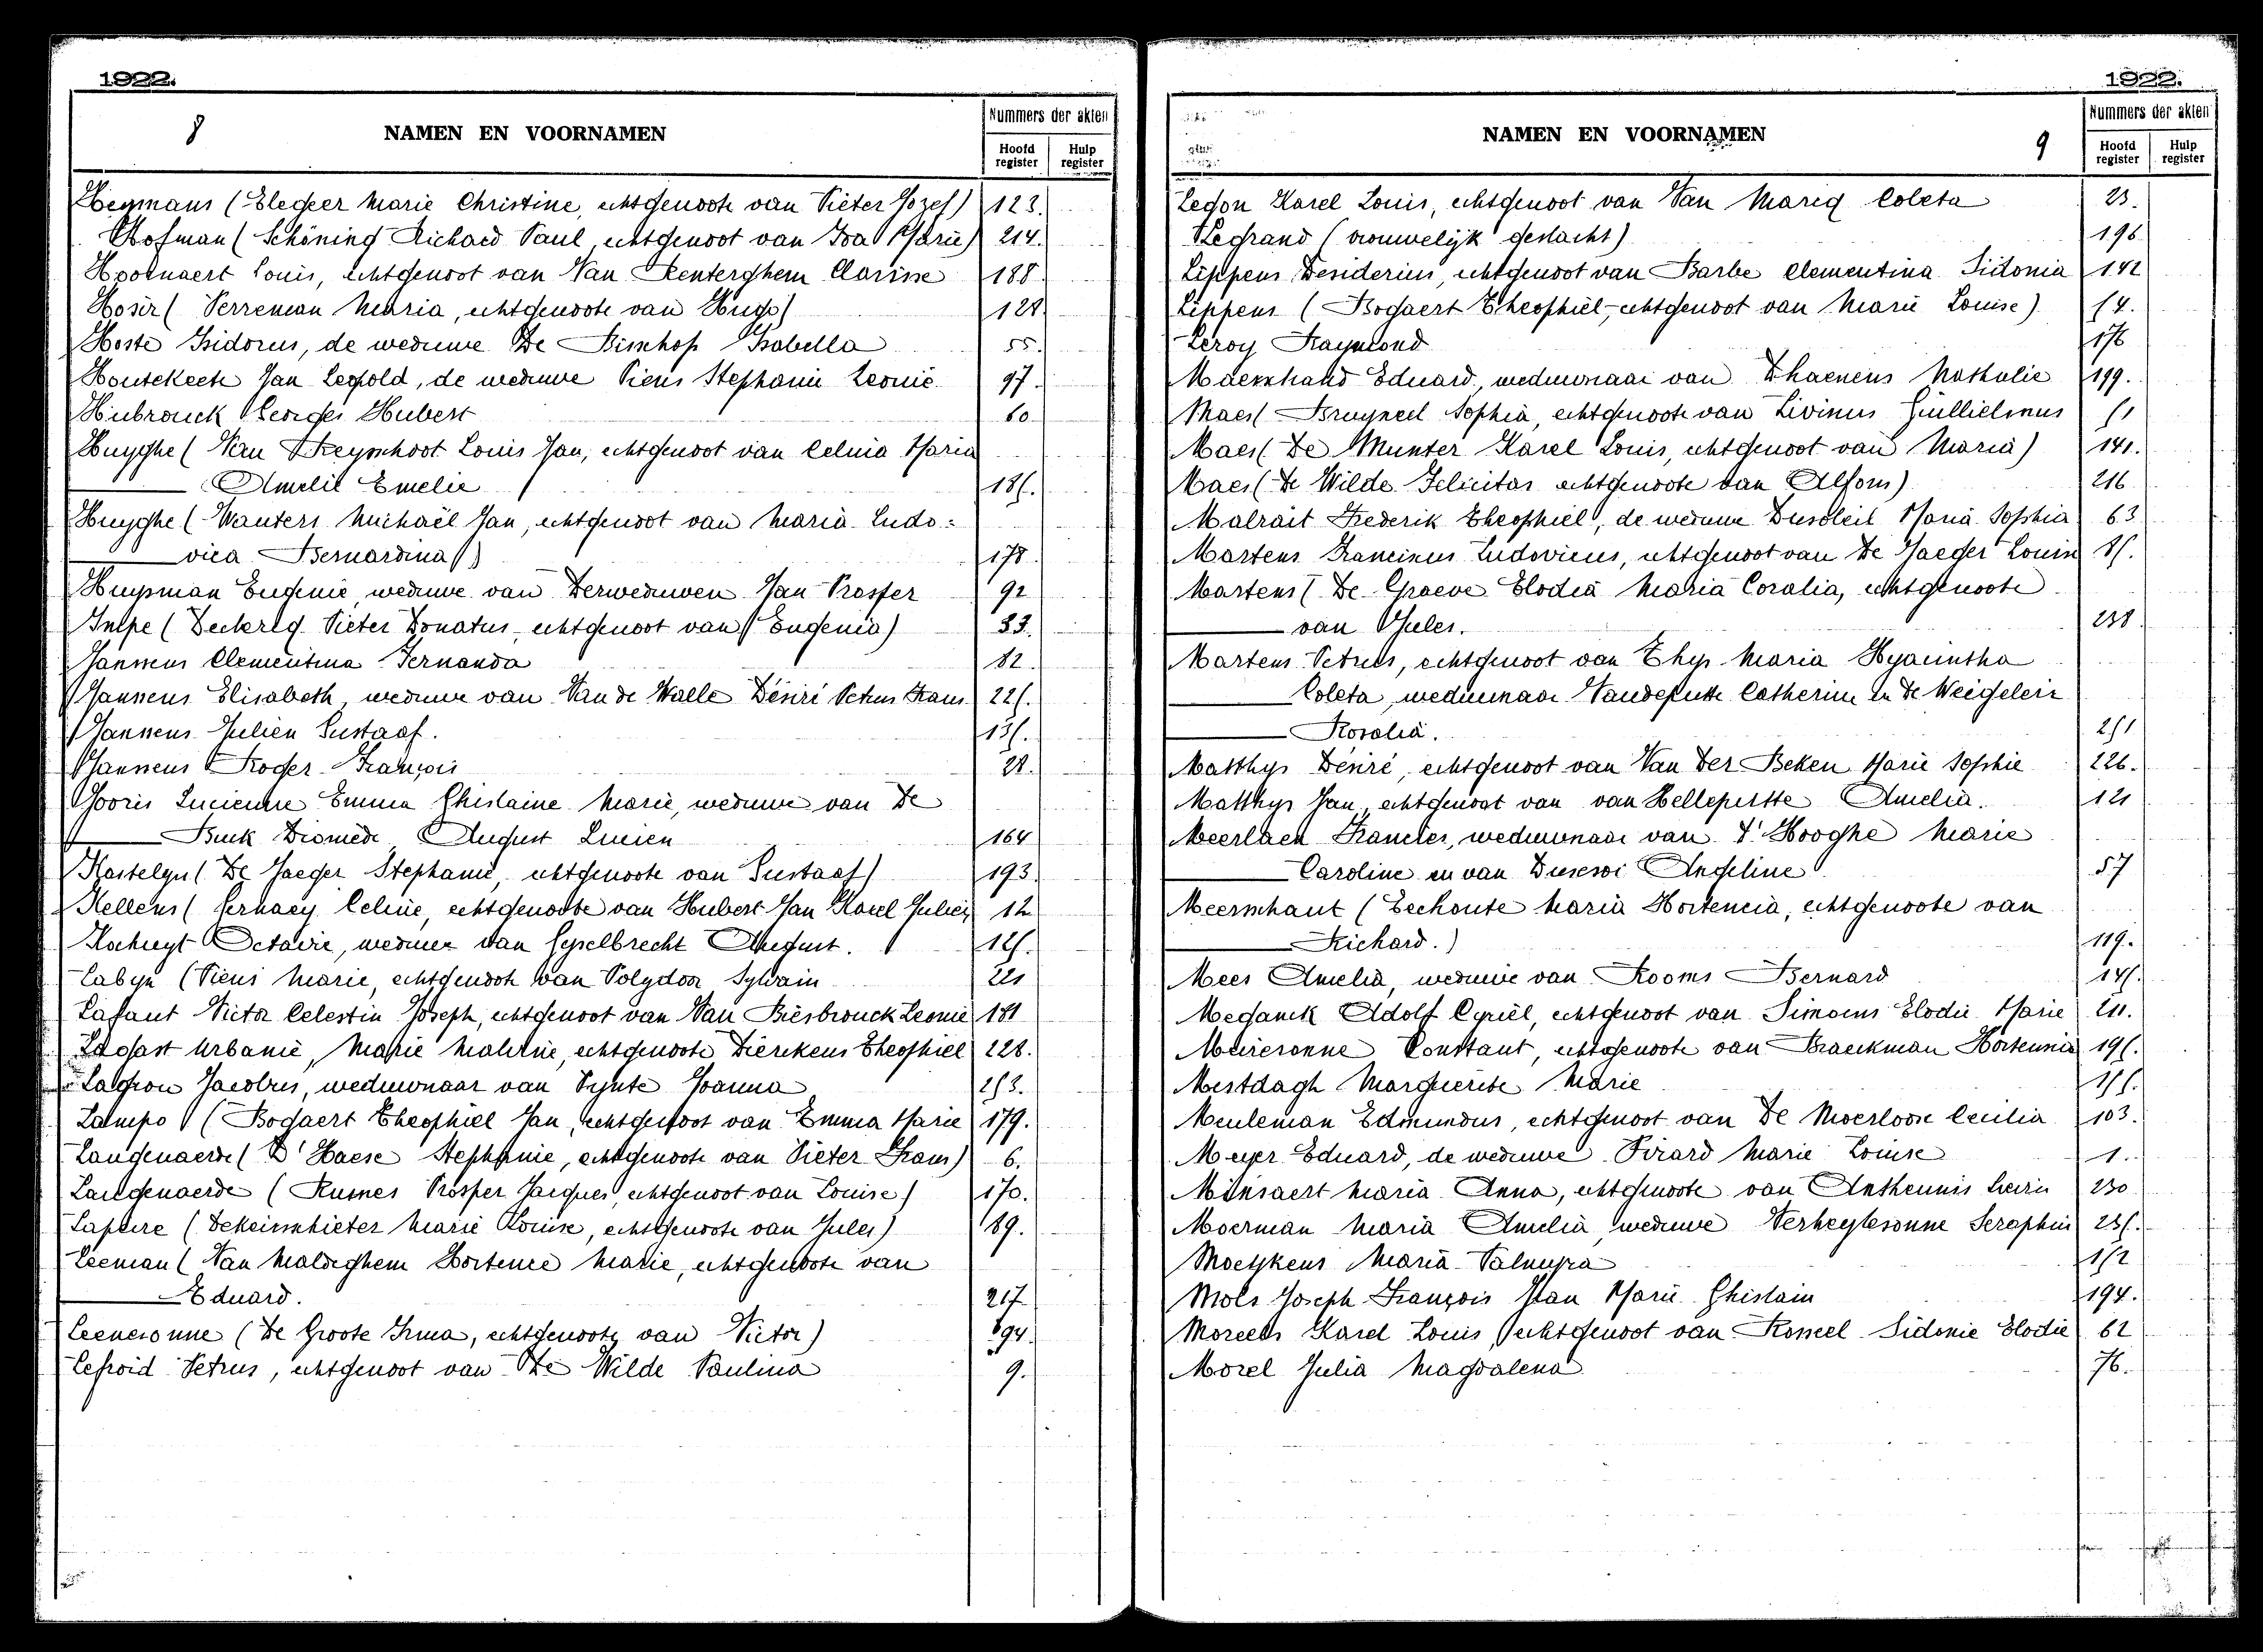 1922.
8
NAMEN EN VOORNAMEN
Nummers der akten
Hoofd register
Hulp register
Heymans (Elegeer Marie Christine, echtgenoote van Pieter Jozef) 123.
Hofman (Schöning Richard Paul, echtgenoot van Iva Marie) 214.
Hoornaert Louis, echtgenoot van Van Renterghem Clarisse 188.
Hosir (Perreman Maria, echtgenoote van Hugo) 128
Hoste Isidorus, de weduwe De Bisschop Isabella 55.
Houtekeete Jan Leopold, de weduwe Piens Stephanie Leonie 97.
Hubrouck Georges Hubert 60
Huyghe (Van Reyschoot Louis Jan, echtgenoot van Celina Maria
Amelie Emelie
Huyghe (Wauters Michaël Jan, echtgenoot van Maria Ludo=
vica Bernardina) 178.
Huysman Eugenie, weduwe van Derweduwen Jan Prosper 92
Inlpe (Deckrey Pieter Donatus, echtgenoot van Eugenia) 33.
Janssens Clementina Fernanda 82.
Janssens Elisabeth, weduwe van Van de Walle Désiré Petrus Frans 225.
Janssens Julien Gustaaf. 135.
Janssens Roger François 28.
Jooris Lucienne Emma Ghislaine Marie, weduwe van De
Buck Diomède August Lucien 164
Kastelyn (De Jaeger Stephanie, echtgenoote van Gustaaf) 193.
Kellens (Gerhaey Celine, echtgenoote van Hubert Jan Karel Julien 12
Kochuyt Octavie, weduwe van Gyselbrecht August. 125.
Labyn (Piens Marie, echtgenoote van Polydoor Sylvain 221
Lafaut Victor Celestin Joseph, echtgenoot van Van Biesbrouck Leonie 181
Ladast Urbanie, Marie Mathilde, echtgenoote Dierckens Theophiel 228.
Lagrou Jacobus, weduwnaar van Pynte Joanna 253.
Lampo (Bogaert Theophiel Jan, echtgenoot van Emma Marie 179.
Langenaerde (D'Haese Stephanie, echtgenoote van Pieter Frans) 6.
Langenaerde (Rusnes Prosper Jacques, echtgenoot van Louise) 170.
Lapeire (Dekeirschieter Marie Louise, echtgenoote van Jules) 89.
Leeman (Van Maldeghem Hortence Marie, echtgenoote van
Eduard. 217
Leenesonne (De Groote Irma, echtgenoote van Victor) 94.
Lefroid Petrus, echtgenoot van De Wilde Paulina 9.
1922.
9
NAMEN EN VOORNAMEN
Nummers der akten
Hoofd register
Hulp register
Legon Karel Louis, echtgenoot van Van Marig Coleta 23.
Legrand (vrouwelijk geslacht) 196
Lippens Desiderius, echtgenoot van Barbe Clementina Sidonia 142
Lippens (Bogaert Theophiel, echtgenoot van Marie Louise) 54.
Leroy Raymond 176
Maenhaud Eduard, weduwnaar van Dhaenens Nathalie 199.
Maes (Bruyneel Sophia, echtgenoote van Livinus Guillielmus 51
Maes (De Munter Karel Louis, echtgenoot van Maria) 141.
Maes (De Wilde Felicitas echtgenoote van Alfons) 216
Malrait Frederik Theophiel, de weduwe Dusoleil Maria Sophia 63
Martens Franciscus Ludovicus, echtgenoot van De Jaeger Louise 85.
Martens (De Graeve Elodia Maria Coralia, echtgenoote
van Jules. 238.
Martens Petrus, echtgenoot van Thys Maria Hyacintha
Coleta, weduwnaar Vandeputte Catherine en De Weigeleir
Rosalia. 251
Matthys Désiré, echtgenoot van Van Der Beken Marie Sophie 226.
Matthys Jan, echtgenoot van van Helleputte Amelia. 121
Meerlaen Francies, weduwnaar van D'Hooghe Marie
Caroline en van Angeline 57
Meerschaut (Eechoute Maria Hortencia, echtgenoote van
Richard.) 119.
Mees Amelia, weduwe van Rooms Bernard 145.
Meganck Adolf Cyriël, echtgenoot van Simoens Elodie Marie 211.
Meiresonne Constant, echtgenoote van Braeckman Hortensia 195.
Mestdagh Marguerite Marie 155.
Meuleman Edmundus, echtgenoot van De Moerloose Cecilia 103.
Meyer Eduard, de weduwe Pirard Marie Louise 1.
Minsaert Maria Anna, echtgenoote van Antheunis Livin 230
Moerman Maria Amelia, weduwe Verheylesonne Seraphin 235.
Moeykens Maria Palmyra 152
Mols Joseph François Jean Marie Ghislain 194.
Moreels Karel Louis, echtgenoot van Rosseel Sidonie Elodie 62
Morel Julia Magdalena 76.